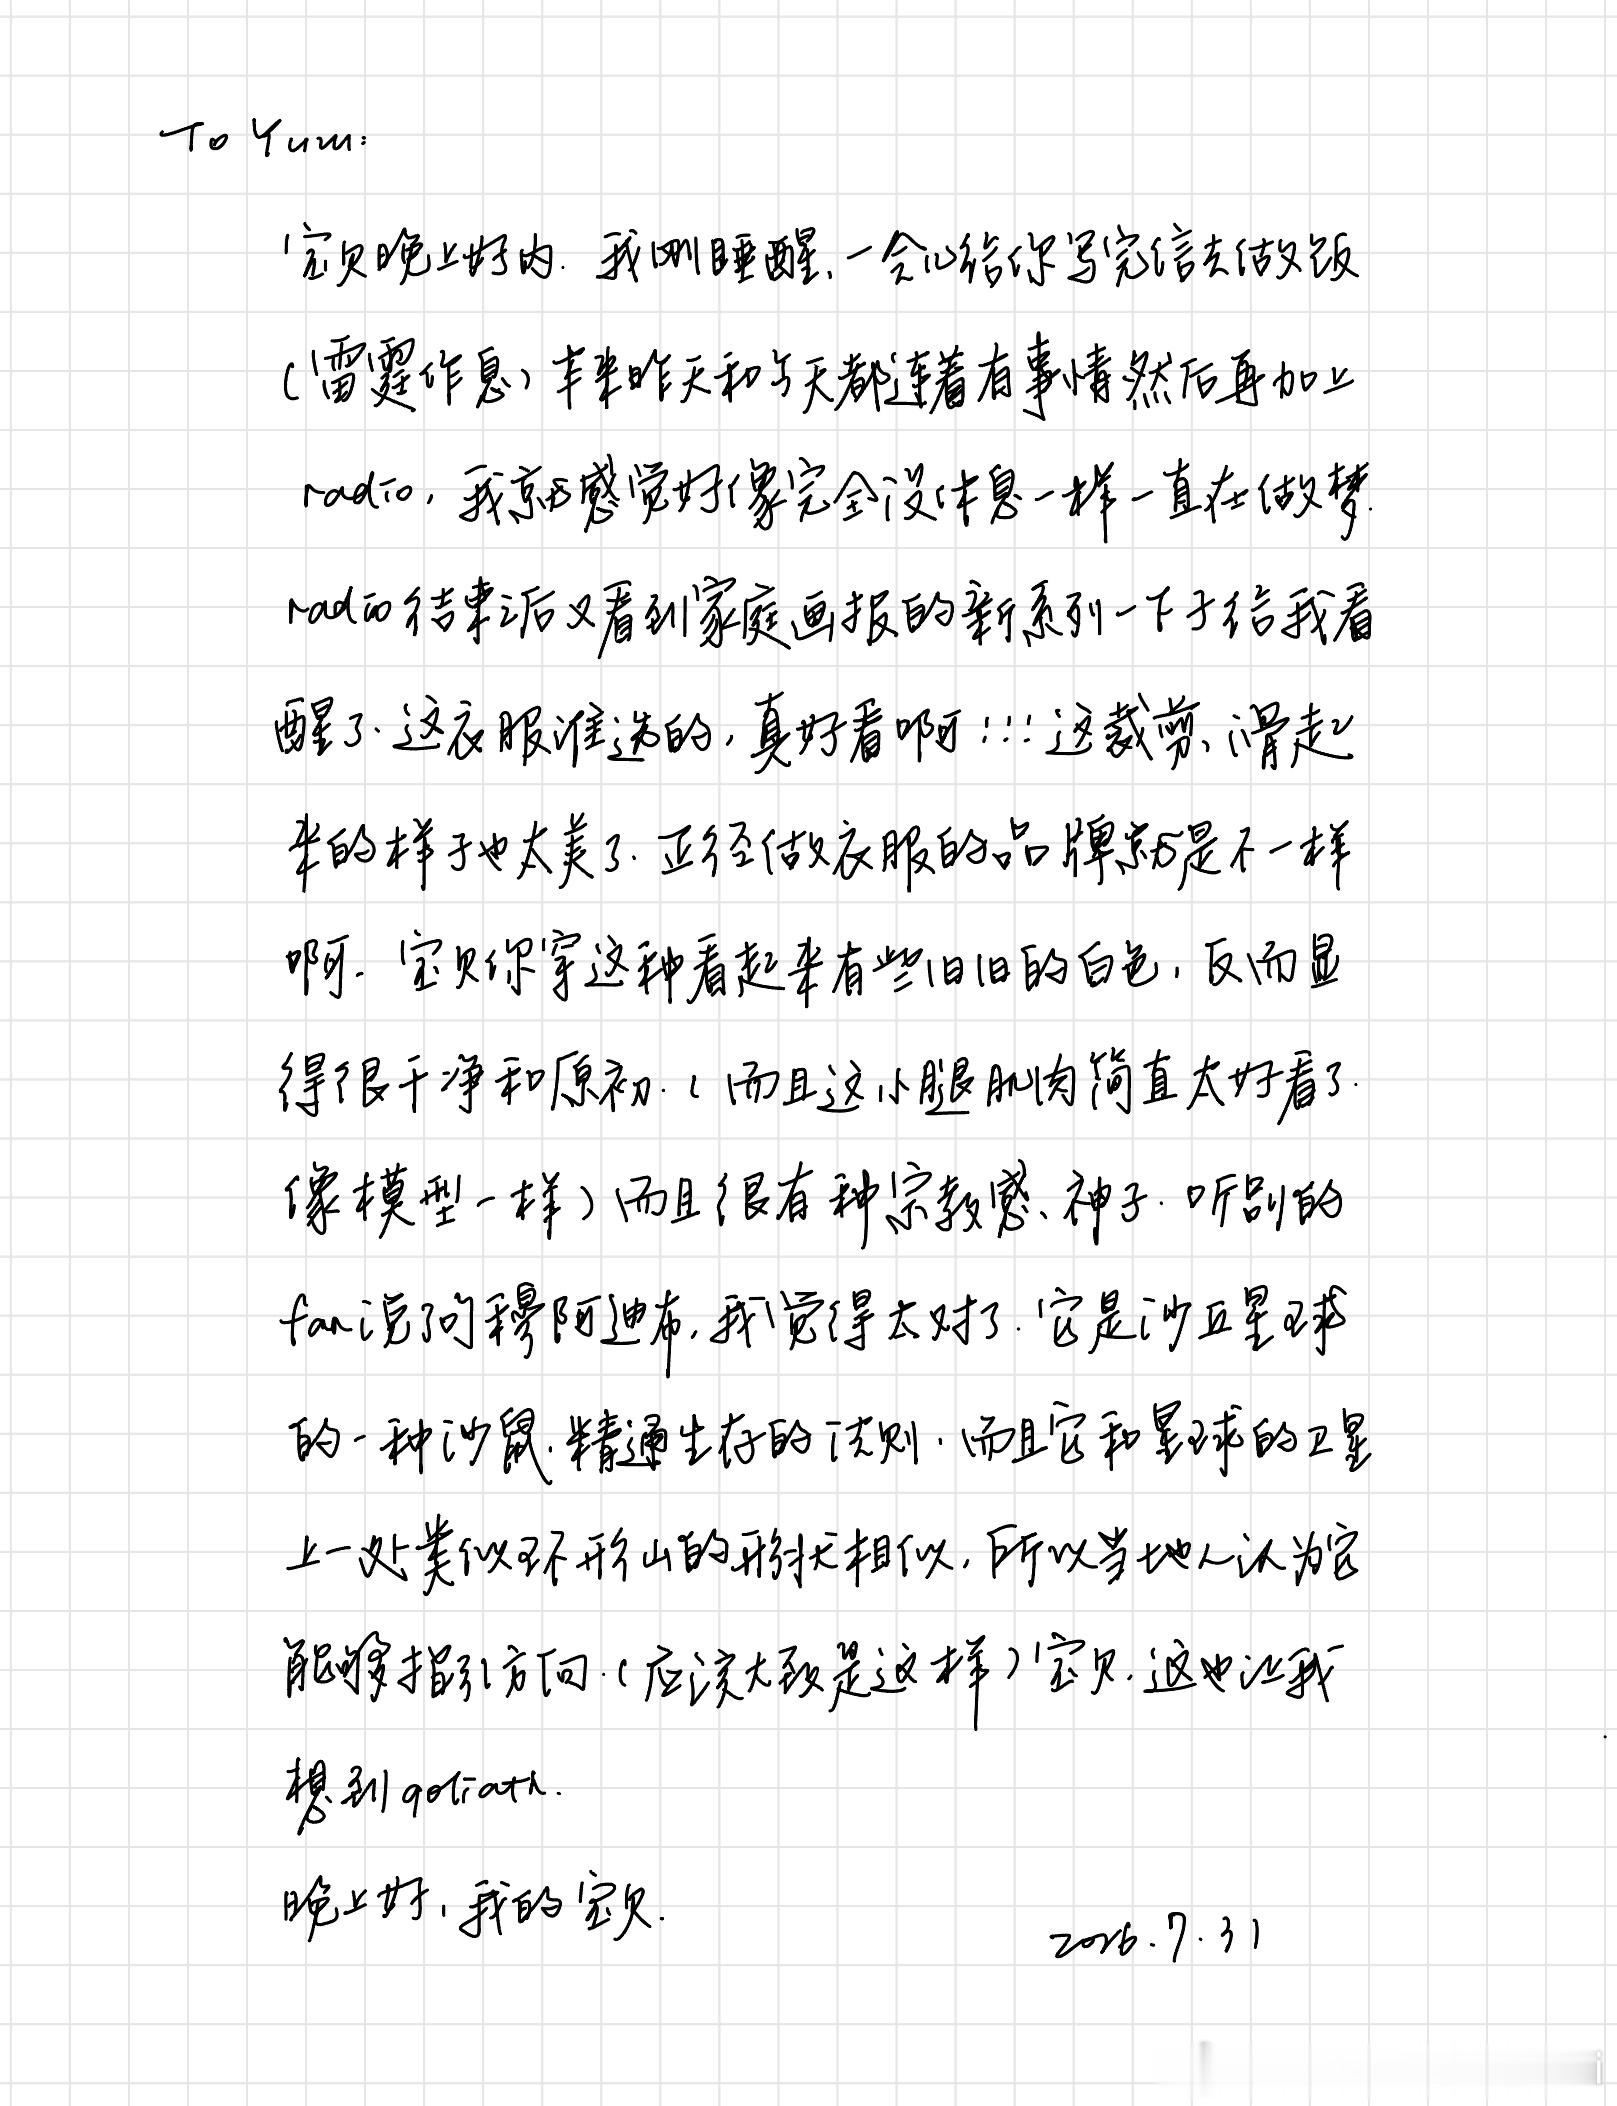 To Yum:
宝贝晚上好呐. 我刚睡醒, 一会儿给你写完信去做饭
(雷霆作息) 本来昨天和今天都连着有事情然后再加上
radio, 我就感觉好像完全没休息一样一直在做梦.
radio结束之后又看到家庭画报的新系列一下子给我看
醒了. 这衣服谁选的, 真好看啊!!! 这裁剪、滑起
来的样子也太美了. 正经做衣服的品牌就是不一样
啊. 宝贝你穿这种看起来有些旧旧的白色, 反而显
得很干净和原初. (而且这小腿肌肉简直太好看了.
像模型一样) 而且很有种宗教感、神子. 听别的
fan说了句穆阿迪布, 我觉得太对了. 它是沙丘星球
的一种沙鼠. 精通生存的法则. 而且它和星球的卫星
上一处类似环形山的形状相似, 所以当地人认为它
能够指引方向. (应该大致是这样) 宝贝. 这也让我
想到goliath.
晚上好, 我的宝贝.
2026.7.31